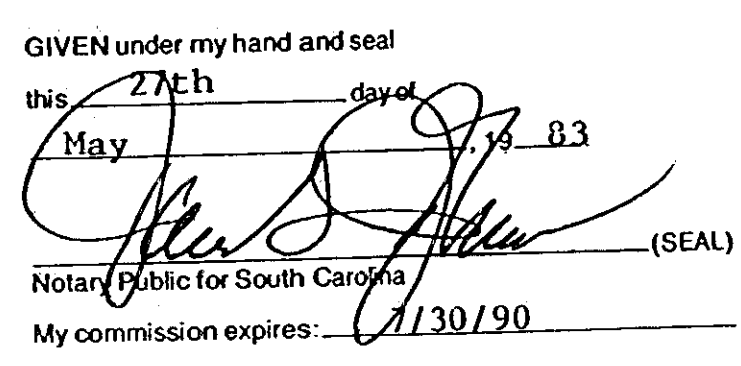 GIVEN under my hand and seal
this 27th day of
May, 19 83
(SEAL)
Notary Public for South Carolina
My commission expires: /30/90